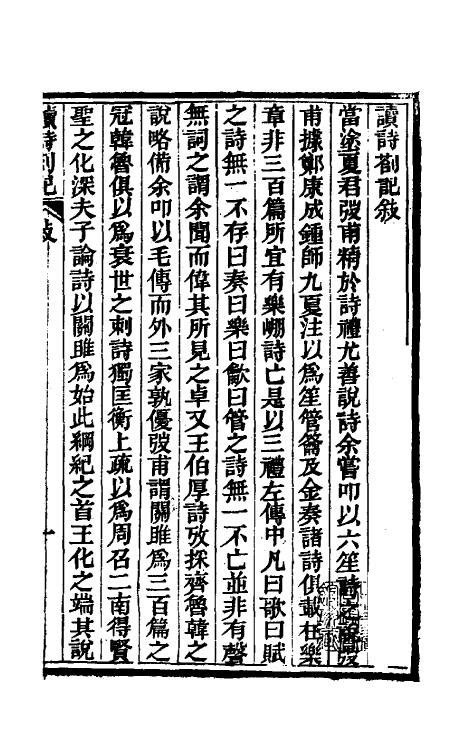 讀詩劄記敍
當塗夏君弢甫精於詩禮尤善說詩余嘗叩以六笙詩弢
甫據鄭康成鍾師九夏注以爲笙管籥及金奏諸詩俱載在樂
章非三百篇所宜有樂崩詩亡是以三禮左傳中凡曰歌曰賦
之詩無一不存曰奏曰樂曰龡曰管之詩無一不亡並非有聲
無詞之謂余聞而偉其所見之卓又王伯厚詩攷採齊魯韓之
說略備余叩以毛傳而外三家孰優弢甫謂關雎爲三百篇之
冠韓魯俱以爲衰世之刺詩獨匡衡上疏以爲周召二南得賢
聖之化深夫子論詩以關雎爲始此綱紀之首王化之端其說
讀詩劄記 敍 一